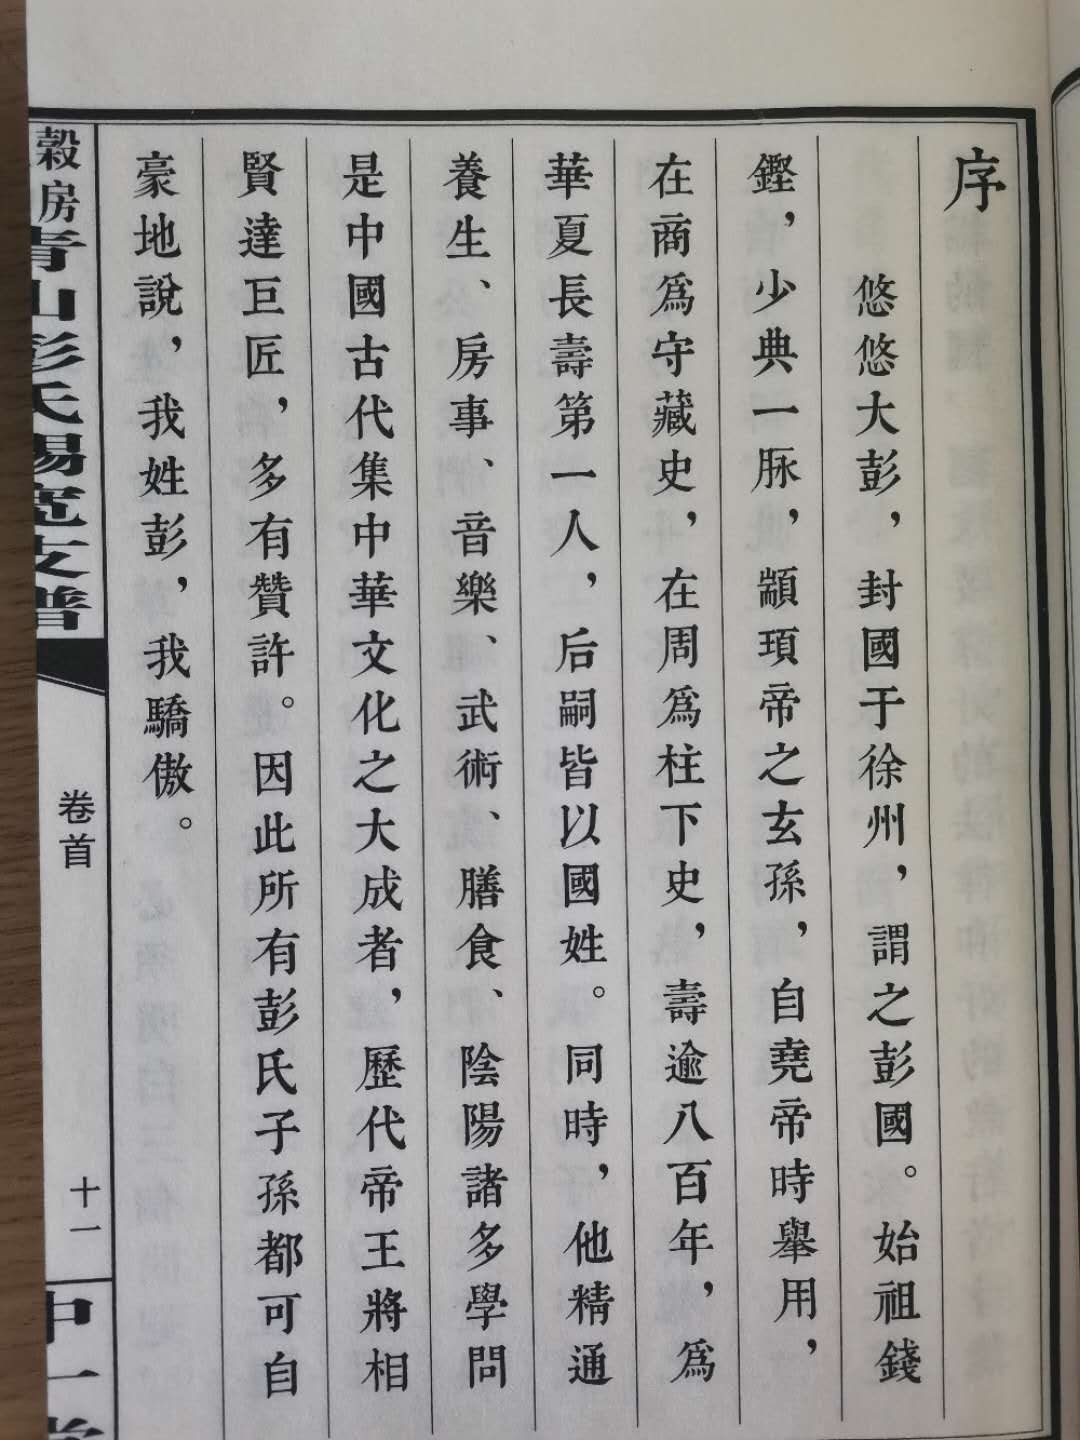 序
悠悠大彭，封國于徐州，謂之彭國。始祖錢
鏗，少典一脉，顓頊帝之玄孫，自堯帝時舉用，
在商爲守藏史，在周爲柱下史，壽逾八百年，爲
華夏長壽第一人，后嗣皆以國姓。同時，他精通
養生、房事、音樂、武術、膳食、陰陽諸多學問
是中國古代集中華文化之大成者，歷代帝王將相
賢達巨匠，多有贊許。因此所有彭氏子孫都可自
豪地說，我姓彭，我驕傲。
穀房青山彭氏錫寬支譜
卷首
十一
中一堂